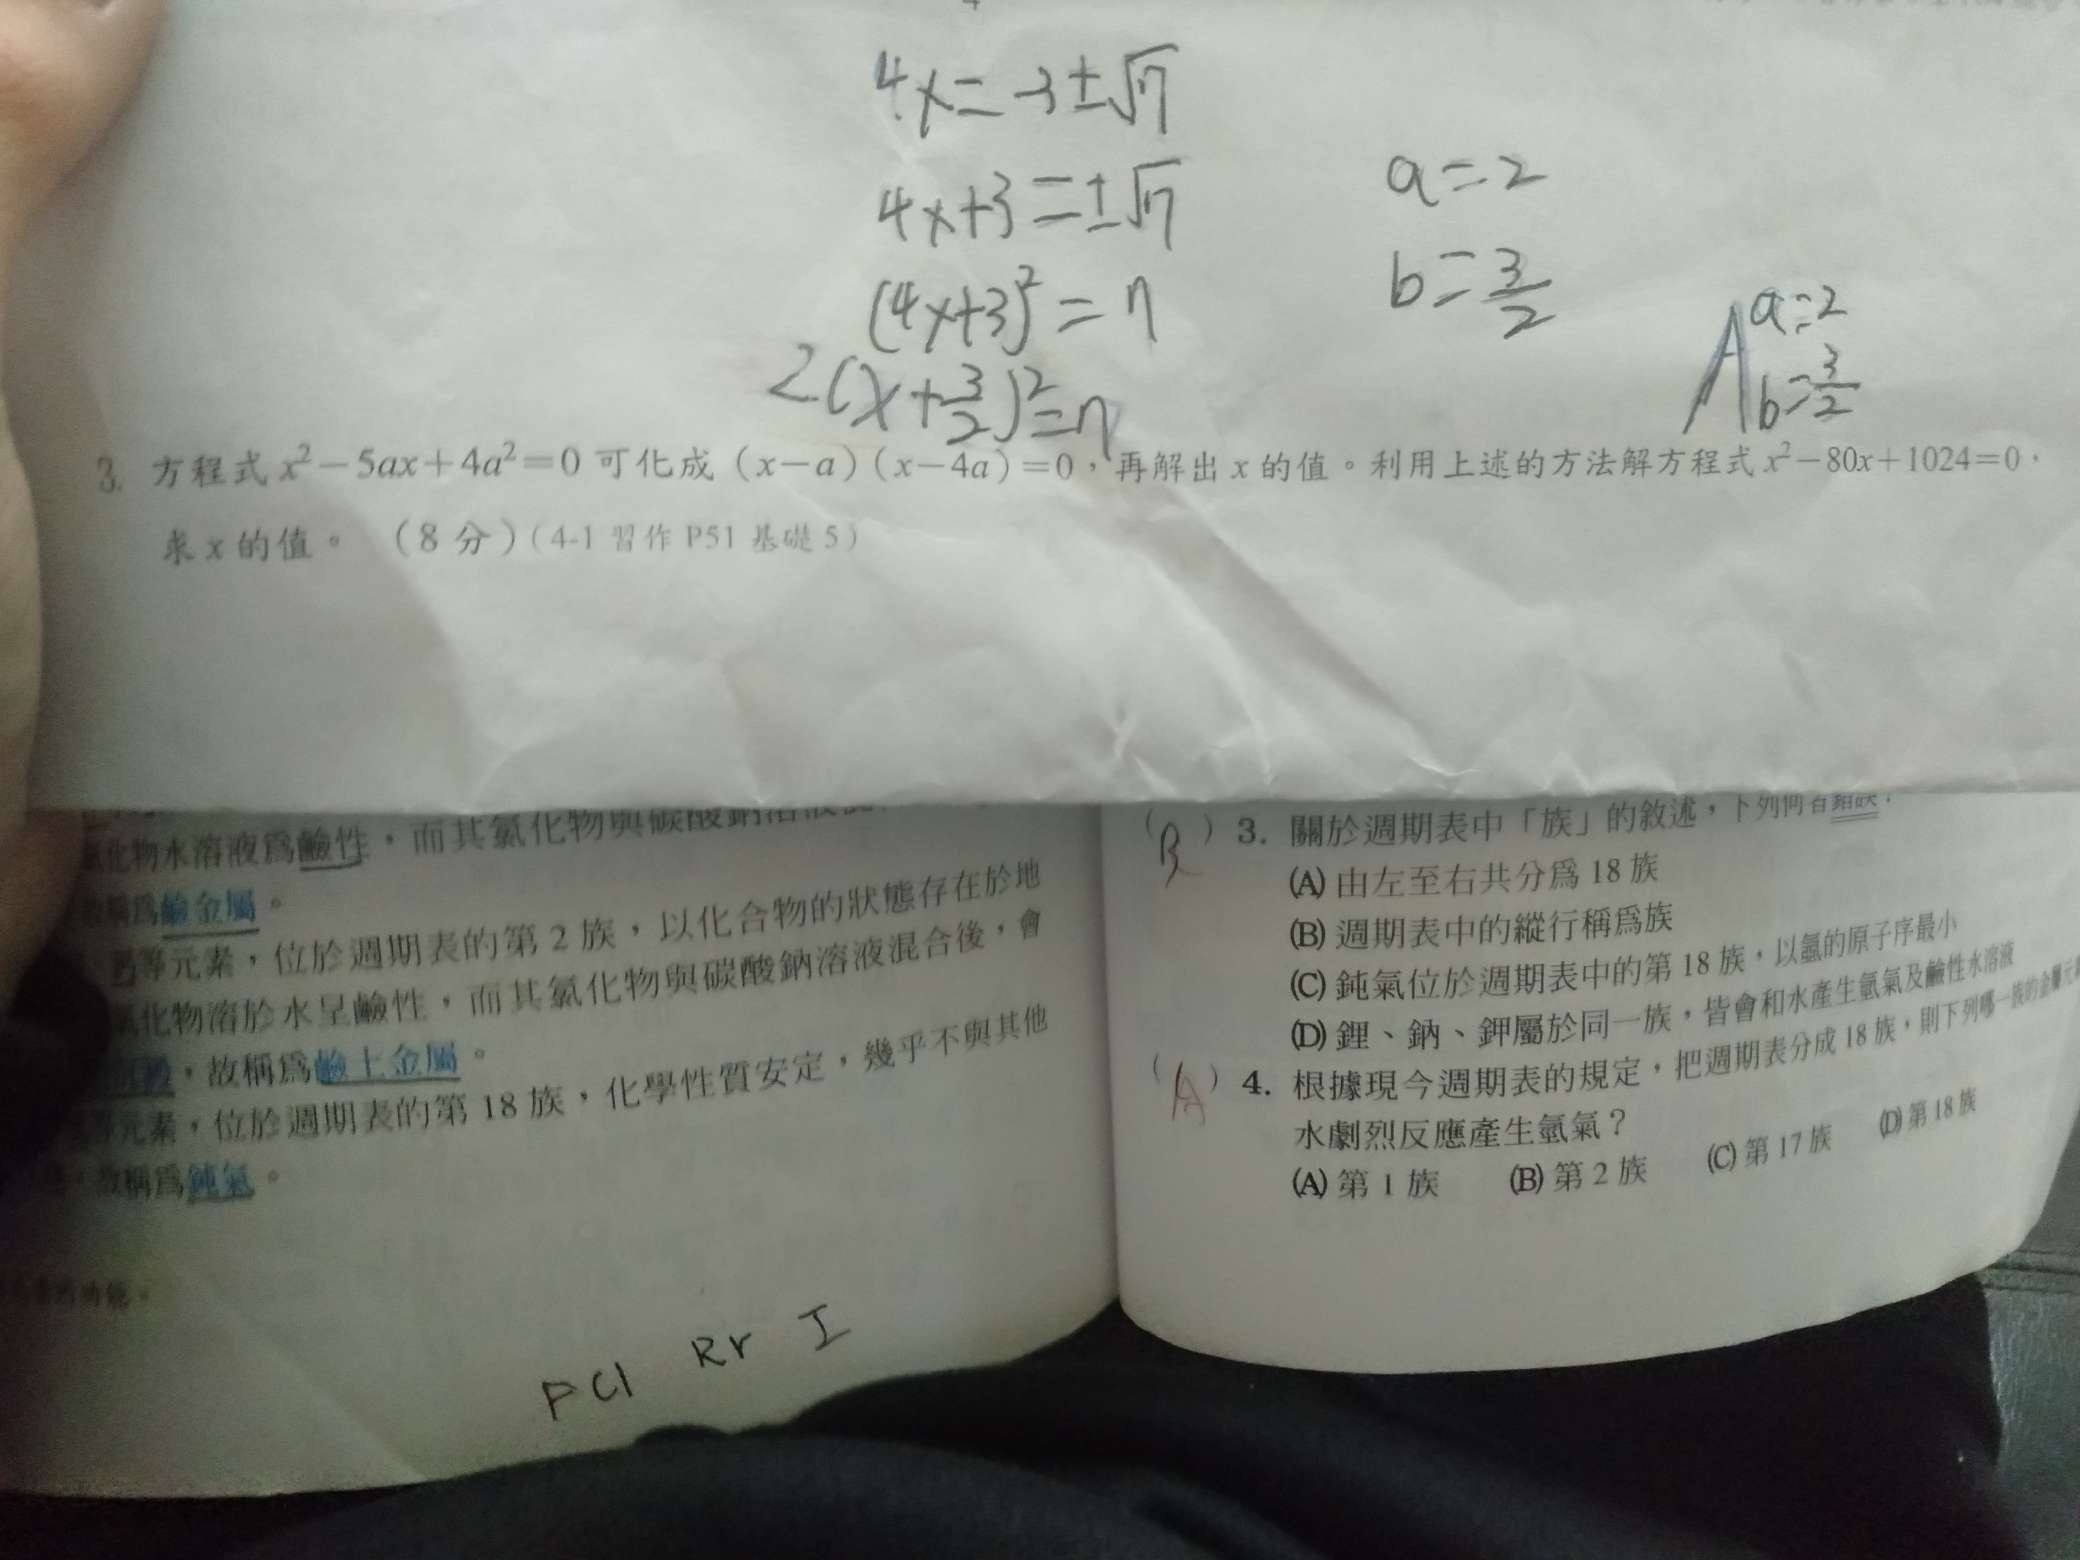 4x=-3±√17
4x+3=±√17
(4x+3)²=17
2(x+3/2)²=17
a=2
b=3/2
A a=2
b=3/2
3. 方程式 x²-5ax+4a²=0 可化成 (x-a)(x-4a)=0,再解出 x 的值。利用上述的方法解方程式 x²-80x+1024=0,
求 x 的值。 (8 分)(4-1 習作 P51 基礎 5)
化物水溶液爲鹼性,而其氯化物與碳酸鈉溶液
稱爲鹼金屬。
等元素,位於週期表的第 2 族,以化合物的狀態存在於地
化物溶於水呈鹼性,而其氯化物與碳酸鈉溶液混合後,會
,故稱爲鹼土金屬。
等元素,位於週期表的第 18 族,化學性質安定,幾乎不與其他
,故稱爲鈍氣。
F Cl Rr I
(B) 3. 關於週期表中「族」的敘述,下列何者錯誤?
(A) 由左至右共分爲 18 族
(B) 週期表中的縱行稱爲族
(C) 鈍氣位於週期表中的第 18 族,以氬的原子序最小
(D) 鋰、鈉、鉀屬於同一族,皆會和水產生氫氣及鹼性水溶液
(A) 4. 根據現今週期表的規定,把週期表分成 18 族,則下列哪一族的金屬元
水劇烈反應產生氫氣?
(A) 第 1 族 (B) 第 2 族 (C) 第 17 族 (D) 第 18 族